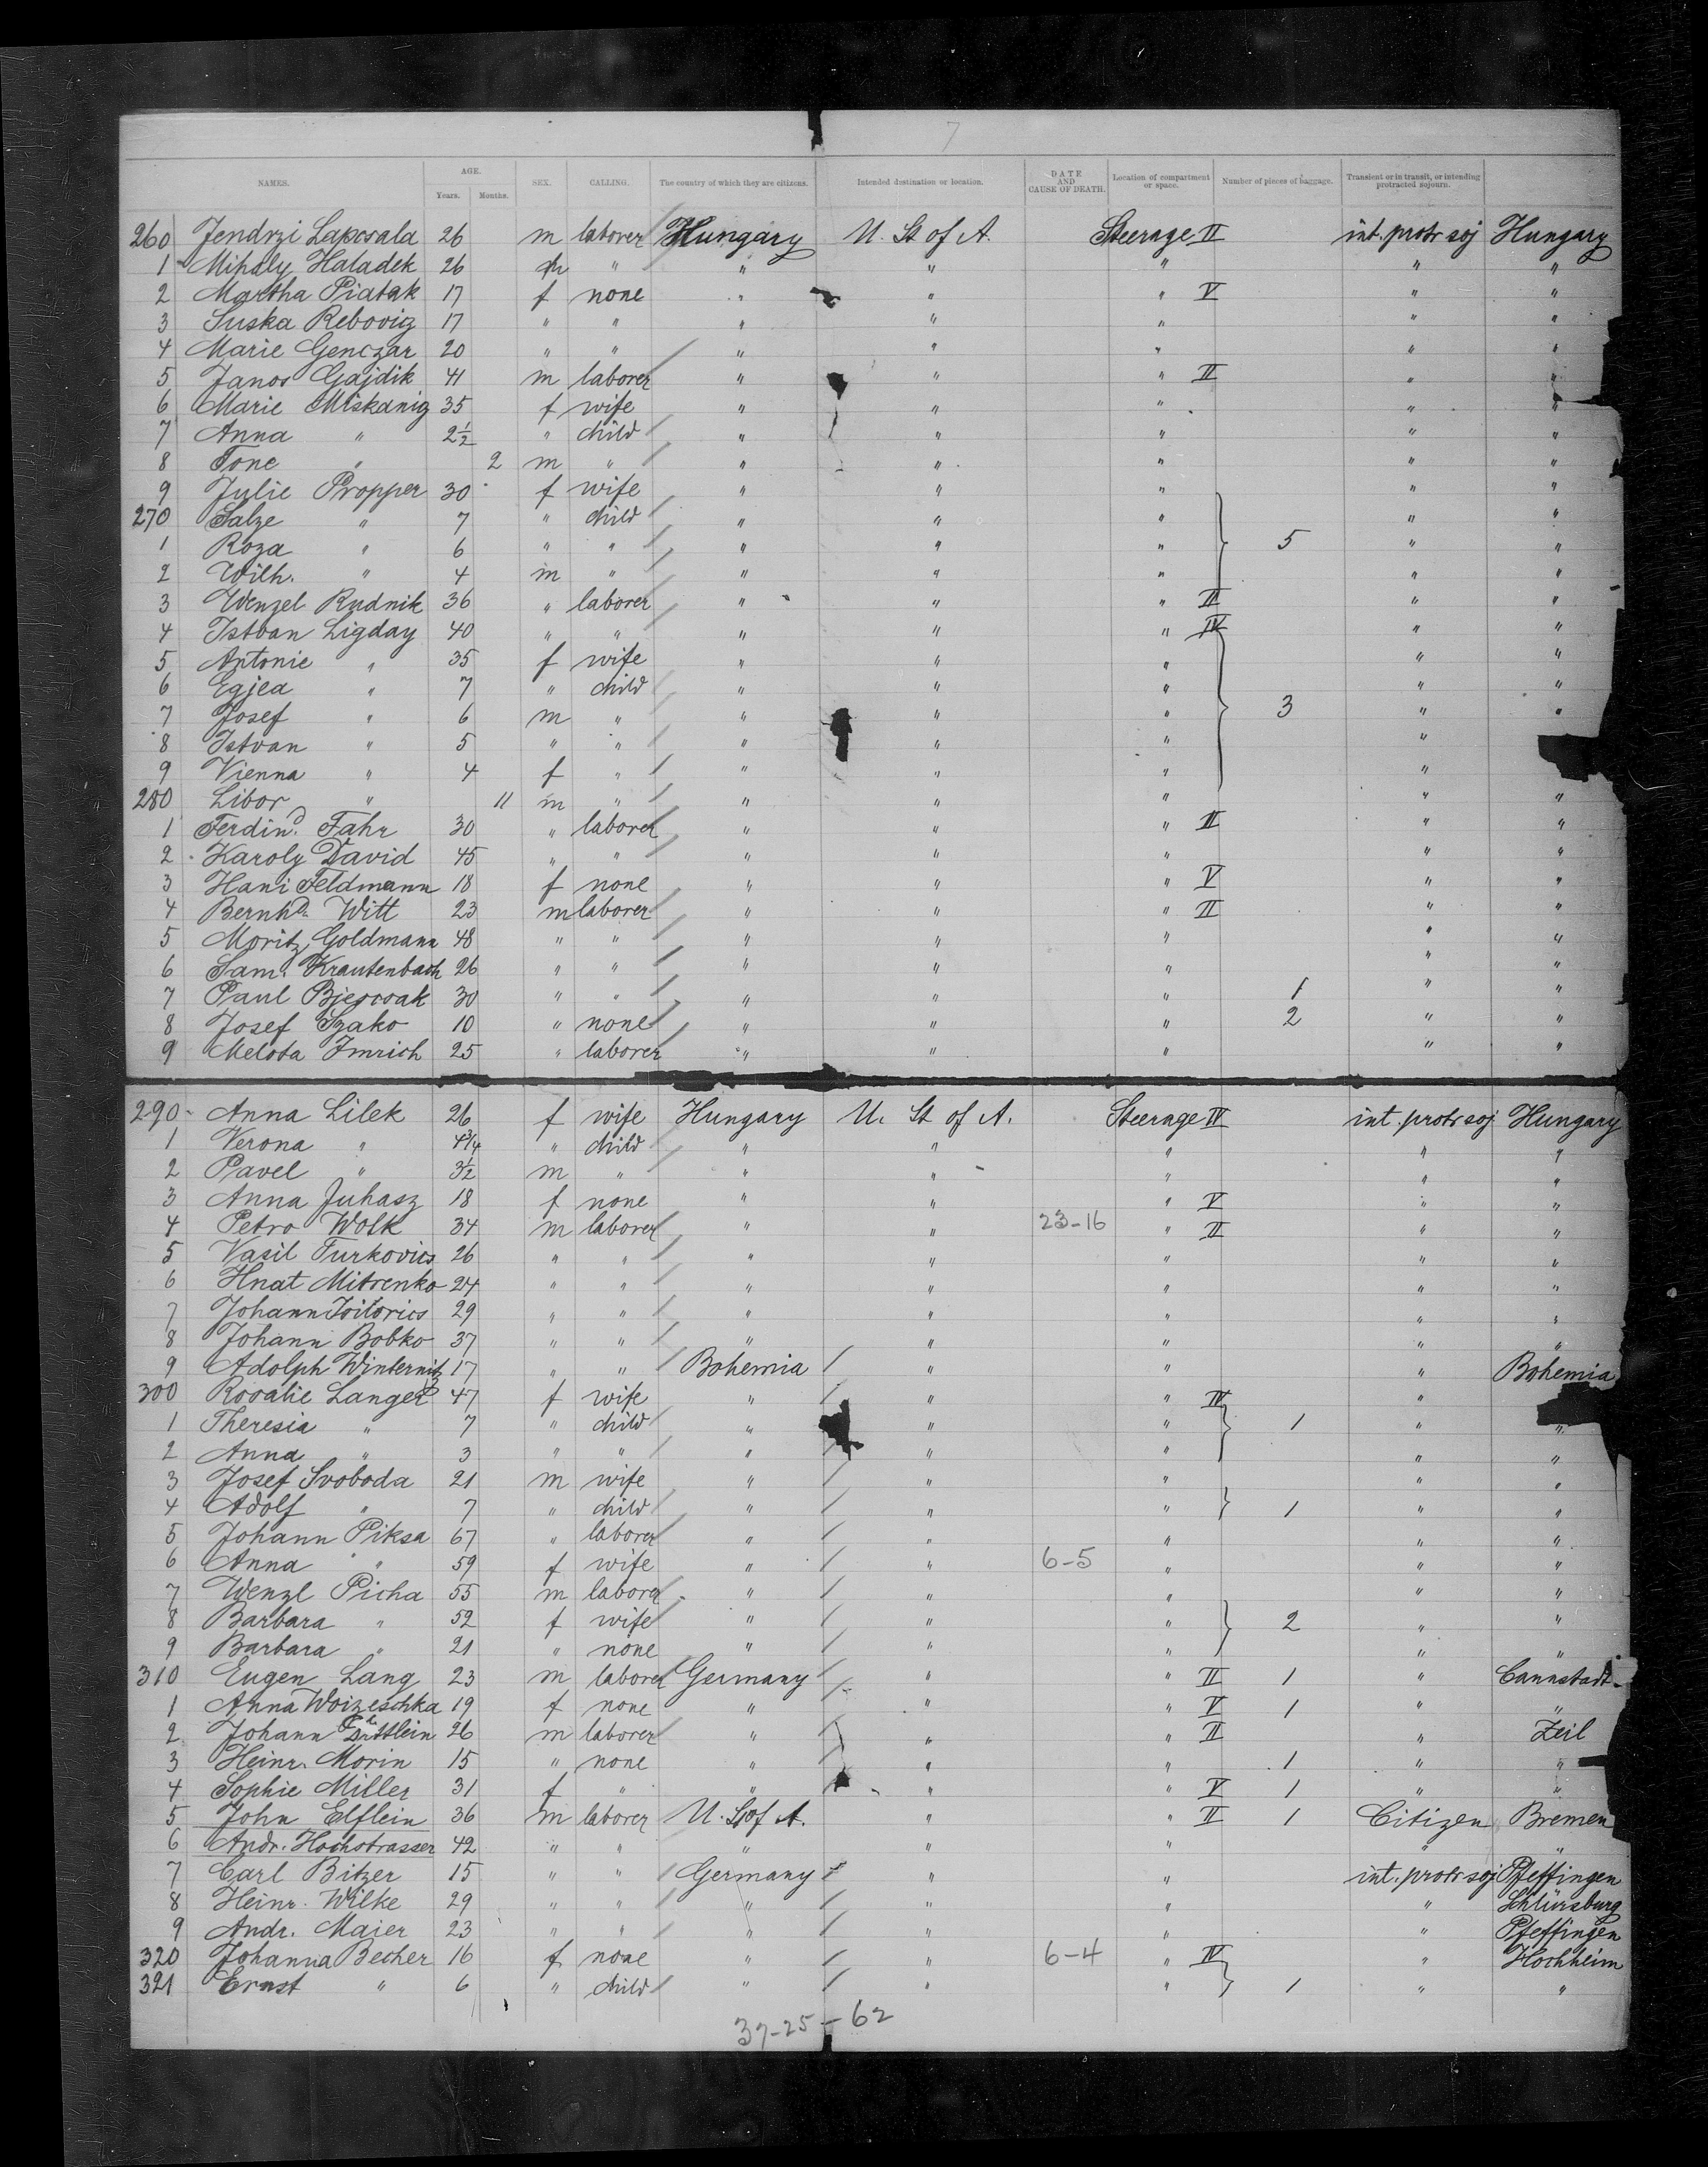 7
NAMES. AGE. Years. Months. SEX. CALLING. The country of which they are citizens. Intended destination or location. DATE AND CAUSE OF DEATH. Location of compartment or space. Number of pieces of baggage. Transient or in transit, or intending protracted sojourn.
260 Jendrzi Lapcsala 26 m laborer Hungary U. St of A. Steerage II int. protr soj Hungary
1 Mihaly Haladek 26 m " " " " " "
2 Martha Piatak 17 f none " " " V " "
3 Suska Rebovig 17 " " " " " " "
4 Marie Genczar 20 " " " " " " "
5 Janos Gajdik 41 m laborer " " " II " "
6 Marie Miskanig 35 f wife " " " " "
7 Anna " 2½ " child " " " " "
8 Tone " 2 m " " " " " "
9 Julie Propper 30 f wife " " " " "
270 Salze " 7 " child " " " " "
1 Roza " 6 " " " " " 5 " "
2 Wilh. " 4 m " " " " " "
3 Wenzel Rudnik 36 " laborer " " " II " "
4 Istvan Ligday 40 " " " " " IV " "
5 Antonie " 35 f wife " " " " "
6 Egjea " 7 " child " " " " "
7 Josef " 6 m " " " " 3 " "
8 Istvan " 5 " " " " " "
9 Vienna " 4 f " " " " "
280 Libor " 11 m " " " " " "
1 Ferdind. Fahr 30 " laborer " " " II " "
2 Karoly David 45 " " " " " " "
3 Hani Feldmann 18 f none " " " V " "
4 Bernhd. Witt 23 m laborer " " " II " "
5 Moritz Goldmann 48 " " " " " " "
6 Sam. Krautenbach 26 " " " " " " "
7 Paul Bjescoak 30 " " " " " 1 " "
8 Josef Szako 10 " none " " " 2 " "
9 Melota Imrich 25 " laborer " " " " "
290 Anna Lilek 26 f wife Hungary U. St of A. Steerage IV int. protr soj Hungary
1 Verona " 4¾ " child " " " " "
2 Pavel " 3½ m " " " " " "
3 Anna Juhasz 18 f none " " " V " "
4 Petro Wolk 34 m laborer " " 23-16 " II " "
5 Vasil Turkovics 26 " " " " " " "
6 Hnat Mitrenko 24 " " " " " " "
7 Johann 29 " " " " " " "
8 Johann Bobko 37 " " " " " " "
9 Adolph Winternitz 17 " " Bohemia " " " Bohemia
300 Rosalie Langer 47 f wife " " " IV "
1 Theresia " 7 " child " " " 1 " "
2 Anna " 3 " " " " " " "
3 Josef Svoboda 21 m wife " " " " "
4 Adolf " 7 " child " " " 1 " "
5 Johann Piksa 67 " laborer " " " " "
6 Anna " 59 f wife " " 6-5 " " "
7 Wenzl Picha 55 m laborer " " " " "
8 Barbara " 52 f wife " " " 2 " "
9 Barbara " 21 " none " " " " "
310 Eugen Lang 23 m laborer Germany " " II 1 " Cannstadt
1 Anna Woizeschka 19 f none " " " V 1 " "
2 Johann 26 m laborer " " " II " Zeil
3 Heinr. Morin 15 " none " " " 1 " "
4 Sophie Miller 31 f " " " " V 1 " "
5 John Elflein 36 m laborer U. St of A. " " II 1 Citizen Bremen
6 Andr. Hochstrasser 42 " " " " " " "
7 Carl Bitzer 15 " " Germany " " int. protr soj Pfeffingen
8 Heinr. Wilke 29 " " " " " "
9 Andr. Maier 23 " " " " " " Pfeffingen
320 Johanna Becher 16 f none " " 6-4 " IV " Hochheim
321 Ernst " 6 " child " " " 1 " "
37-25-62